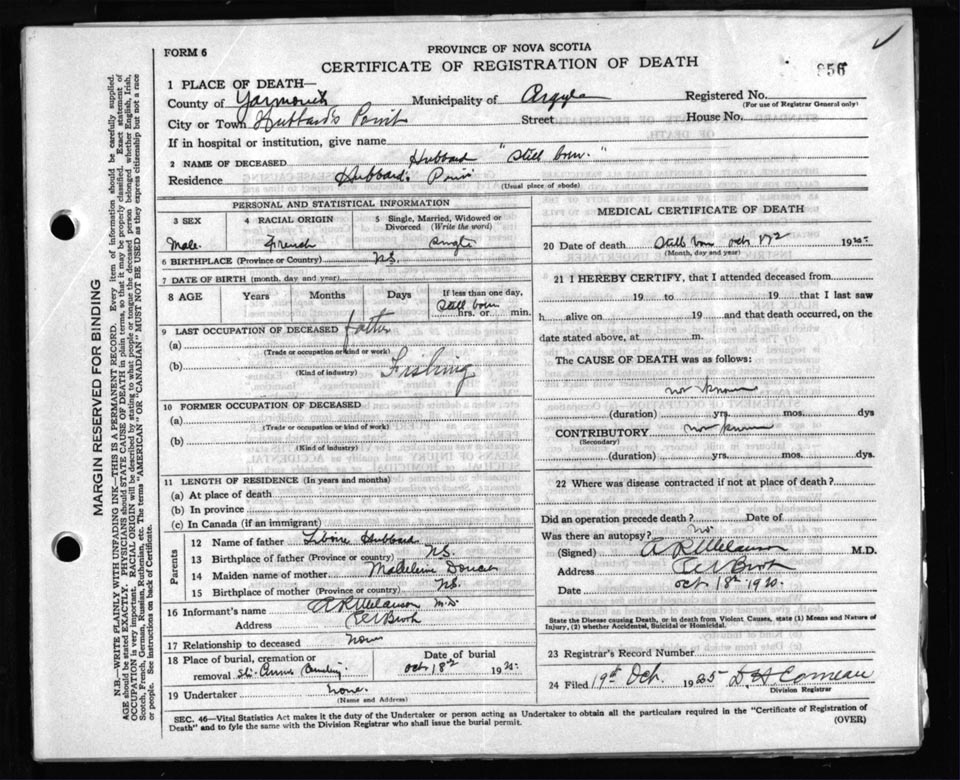 FORM 6
PROVINCE OF NOVA SCOTIA
CERTIFICATE OF REGISTRATION OF DEATH
856
1 PLACE OF DEATH—
County of Yarmouth Municipality of Argyle Registered No.
(For use of Registrar General only)
City or Town Hubbard's Point Street House No.
If in hospital or institution, give name
2 NAME OF DECEASED Hubbard "Still born."
Residence Hubbard's Point
(Usual place of abode)
MARGIN RESERVED FOR BINDING
N.B.—WRITE PLAINLY WITH UNFADING INK—THIS IS A PERMANENT RECORD. Every item of information should be carefully supplied.
AGE should be stated EXACTLY. PHYSICIANS should STATE CAUSE OF DEATH in plain terms, so that it may be properly classified. Exact statement of
OCCUPATION is very important. RACIAL ORIGIN will be described by stating to what people or tongue the deceased person belonged whether English, Irish,
Scotch, French, German, Russian, Roumanian, etc. The terms "AMERICAN" OR "CANADIAN" MUST NOT BE USED as they express citizenship but not a race
or people. See instructions on back of Certificate.
PERSONAL AND STATISTICAL INFORMATION
3 SEX 4 RACIAL ORIGIN 5 Single, Married, Widowed or
Divorced (Write the word)
Male. French Single
6 BIRTHPLACE (Province or Country) N.S.
7 DATE OF BIRTH (month, day and year)
8 AGE Years Months Days If less than one day,
Still born
hrs. or min.
9 LAST OCCUPATION OF DECEASED father
(a)
(Trade or occupation or kind or work)
(b) Fishing
(Kind of industry)
10 FORMER OCCUPATION OF DECEASED
(a)
(Trade or occupation or kind of work)
(b)
(Kind of industry)
11 LENGTH OF RESIDENCE (In years and months)
(a) At place of death
(b) In province
(c) In Canada (if an immigrant)
Parents
12 Name of father Hubbard
13 Birthplace of father (Province or country) N.S.
14 Maiden name of mother Madeleine Doucet
15 Birthplace of mother (Province or country) N.S.
16 Informant's name A R Melanson M.D.
Address Eel Brook
17 Relationship to deceased None
18 Place of burial, cremation or
removal Ste. Annes Cemetery
Date of burial
Oct 18th 1925
19 Undertaker none.
(Name and Address)
MEDICAL CERTIFICATE OF DEATH
20 Date of death Still born Oct 17th 1925
(Month, day and year)
21 I HEREBY CERTIFY, that I attended deceased from
19 to 19 that I last saw
h alive on 19 and that death occurred, on the
date stated above, at m.
The CAUSE OF DEATH was as follows:
not known
(duration) yrs. mos. dys
CONTRIBUTORY not known
(Secondary)
(duration) yrs. mos. dys.
22 Where was disease contracted if not at place of death?
Did an operation precede death? No. Date of
Was there an autopsy?
(Signed) A R Melanson M.D.
Address Eel Brook
Date Oct 18th 1925.
State the Disease causing Death, or in death from Violent Causes, state (1) Means and Nature of
Injury, (2) whether Accidental, Suicidal or Homicidal.
23 Registrar's Record Number
24 Filed 19th Oct. 1925 D. H Comeau
Division Registrar
SEC. 46—Vital Statistics Act makes it the duty of the Undertaker or person acting as Undertaker to obtain all the particulars required in the "Certificate of Registration of
Death" and to fyle the same with the Division Registrar who shall issue the burial permit.
(OVER)